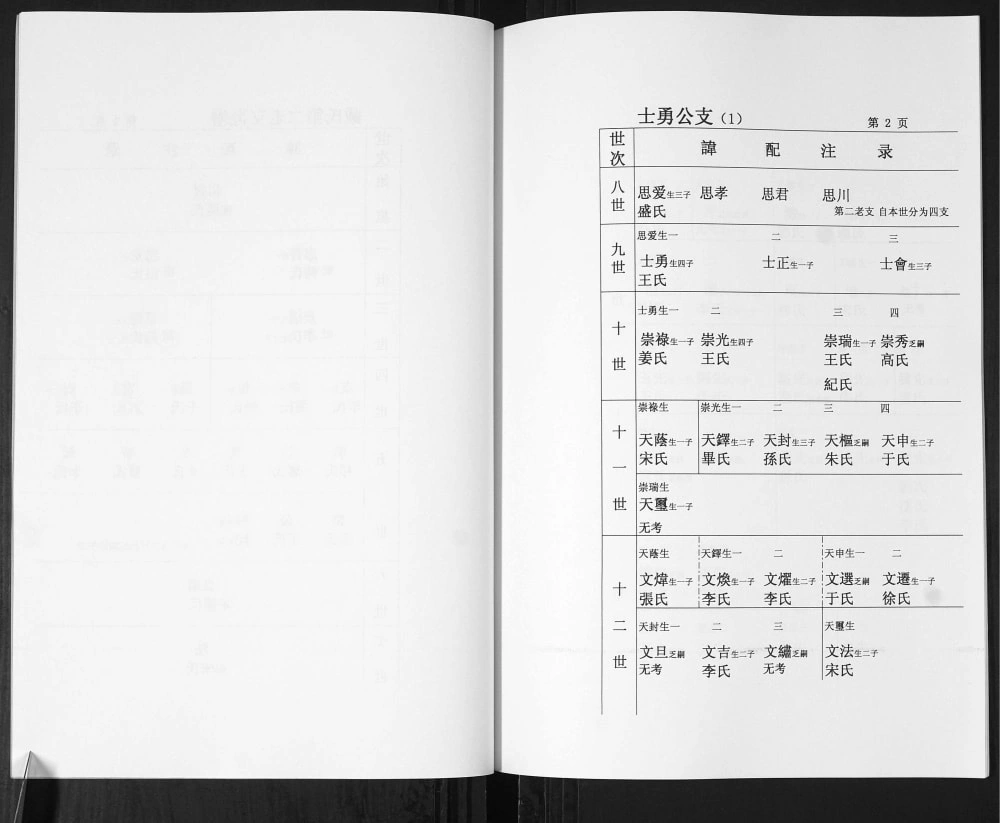 士勇公支（1） 第 2 页
世次 諱 配 注 录
八世 思爱生三子 思孝 思君 思川
盛氏 第二老支 自本世分为四支
九世 思爱生一 二 三
士勇生四子 士正生一子 士會生三子
王氏
十世 士勇生一 二 三 四
崇祿生一子 崇光生四子 崇瑞生一子 崇秀乏嗣
姜氏 王氏 王氏 高氏
紀氏
十一世 崇祿生 崇光生一 二 三 四
天蔭生一子 天鐸生二子 天封生三子 天樞乏嗣 天申生二子
宋氏 畢氏 孫氏 朱氏 于氏
崇瑞生
天璽生一子
无考
十二世 天蔭生 天鐸生一 二 天申生一 二
文煒生一子 文煥生一子 文燿生二子 文選乏嗣 文遷生一子
張氏 李氏 李氏 于氏 徐氏
天封生一 二 三 天璽生
文旦乏嗣 文吉生二子 文繡乏嗣 文法生二子
无考 李氏 无考 宋氏